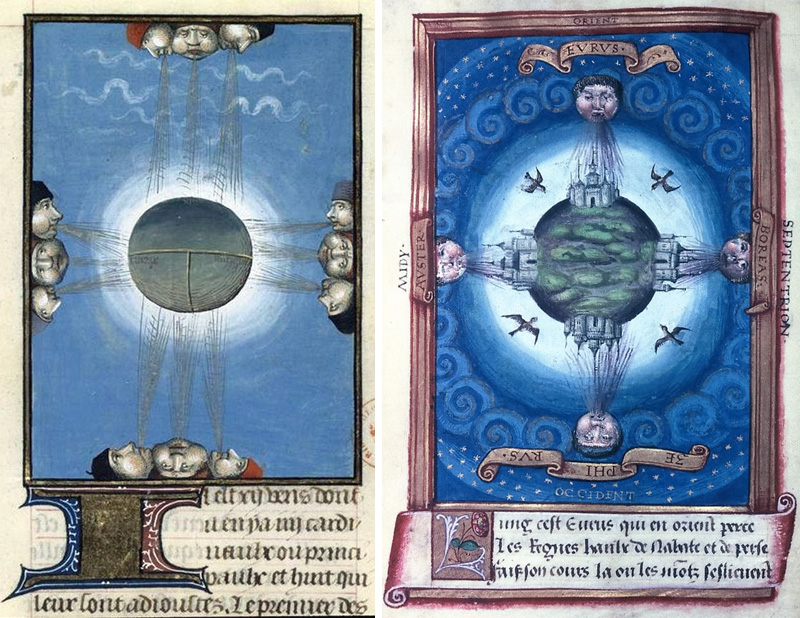 l est xij vens dont
il en ya iiij cardi
naulx ou princi
paulx et huit qui
leur sont adioustez. Le premier des
ORIENT
EVRVS
MIDY.
AVSTER
BOREAS.
SEPTENTRION.
ZEPHIRVS.
OCCIDENT
Lung cest Eurus qui en orient perce
Les Regnes hault de Nabate et de perse
faiſt son cours la ou les mõtz sesslieuent